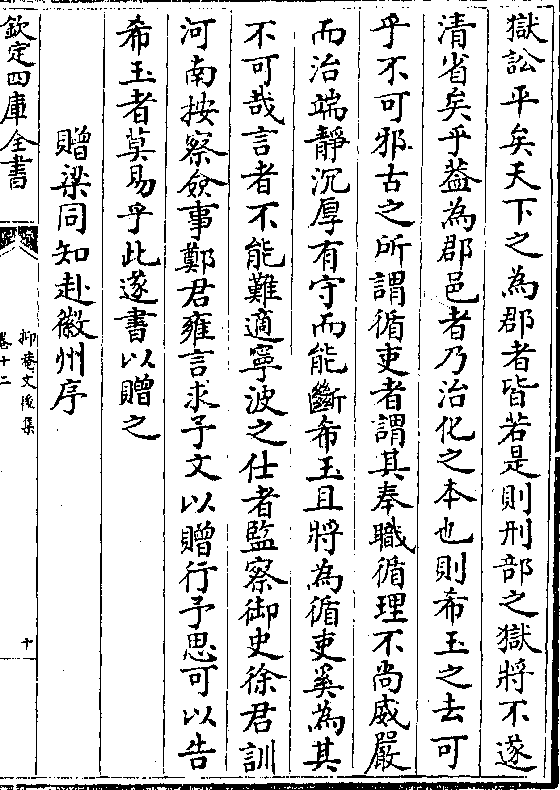 獄訟平矣天下之為郡者皆若是則刑部之獄將不遂
清省矣乎葢為郡邑者乃治化之本也則希玉之去可
乎不可邪古之所謂循吏者謂其奉職循理不尚威嚴
而治端靜沉厚有守而能斷希玉且將為循吏奚為其
不可哉言者不能難適寧波之仕者監察御史徐君訓
河南按察僉事鄭君雍言求予文以贈行予思可以告
希玉者莫易乎此遂書以贈之
贈梁同知赴徽州序
欽定四庫全書
抑菴文後集
卷十二
十